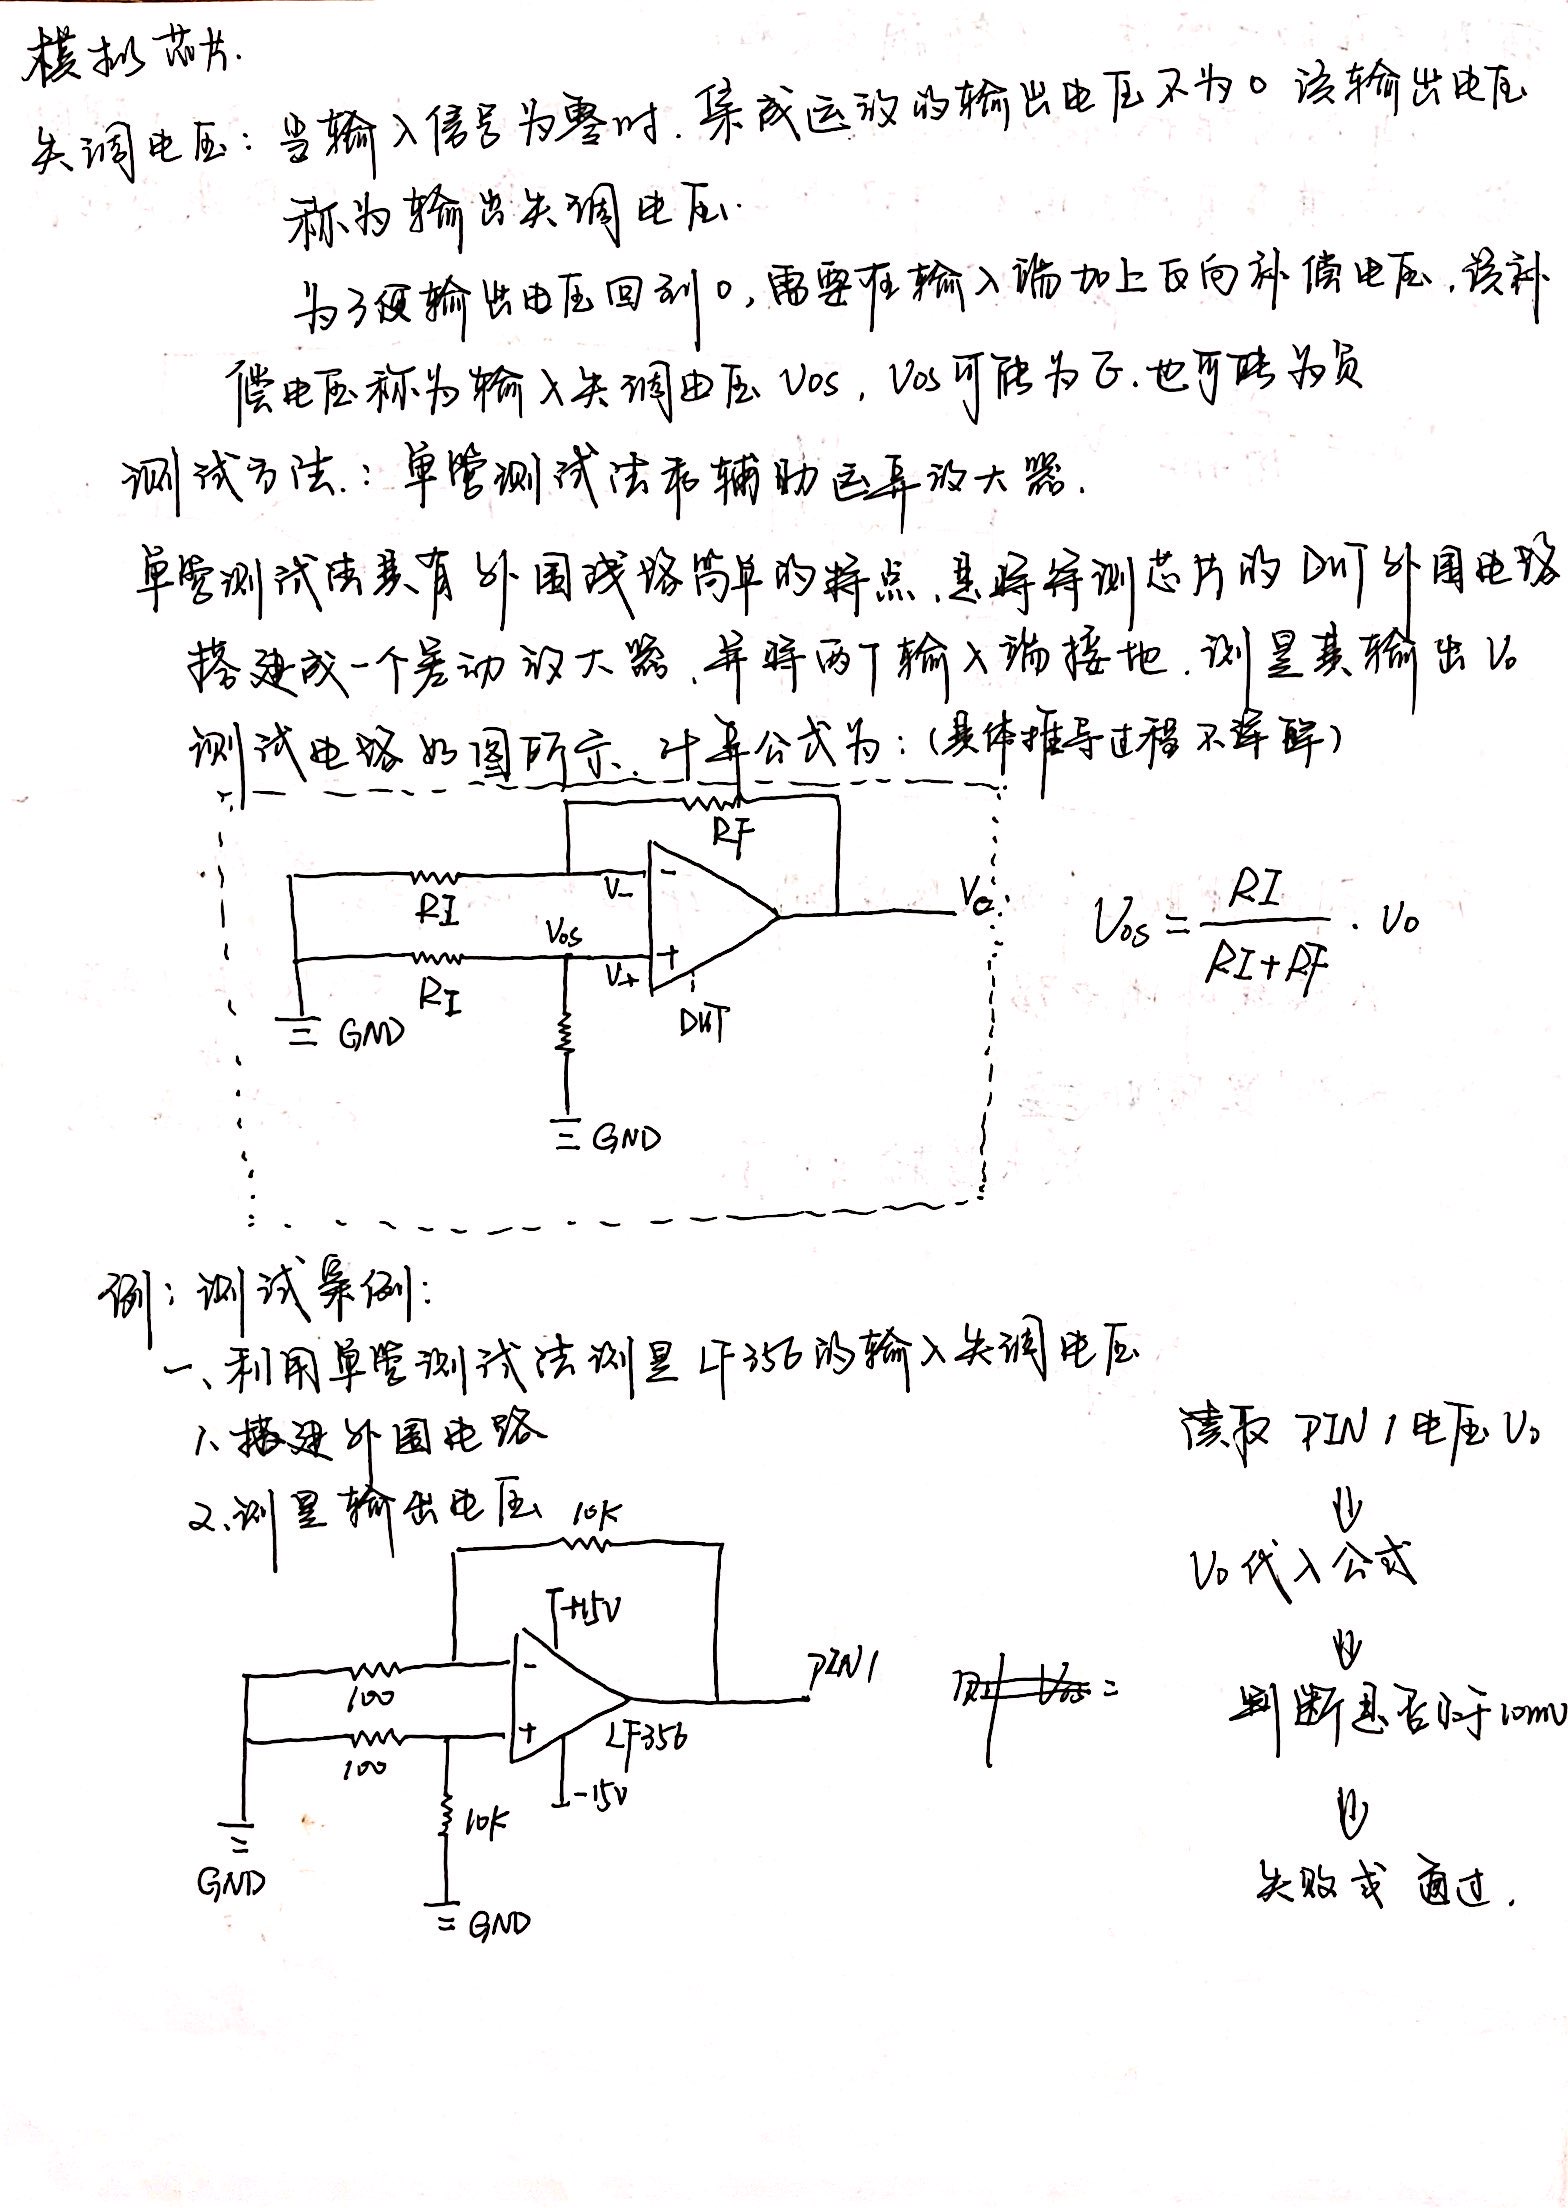 模拟芯片.
失调电压：当输入信号为零时.集成运放的输出电压不为0 该输出电压
称为输出失调电压.
为了使输出电压回到0,需要在输入端加上反向补偿电压,该补
偿电压称为输入失调电压 Vos, Vos可能为正.也可能为负
测试方法.：单管测试法和辅助运算放大器.
单管测试法具有外围线路简单的特点,是将待测芯片的DUT外围电路
搭建成一个差动放大器,并将两个输入端接地.测量其输出Vo
测试电路如图所示、计算公式为：(具体推导过程不详解)
RF
RI
V-
-
Vo
Vos
RI
V+
+
DUT
GND
GND
Vos = RI / (RI+RF) · Vo
例：测试案例：
一、利用单管测试法测量LF356的输入失调电压
1、搭建外围电路
2、测量输出电压
10K
+15V
100
-
PIN1
100
+
LF356
-15V
10K
GND
GND
读取 PIN1电压Vo
⇓
Vo代入公式
⇓
判断是否小于10mV
⇓
失败或 通过.